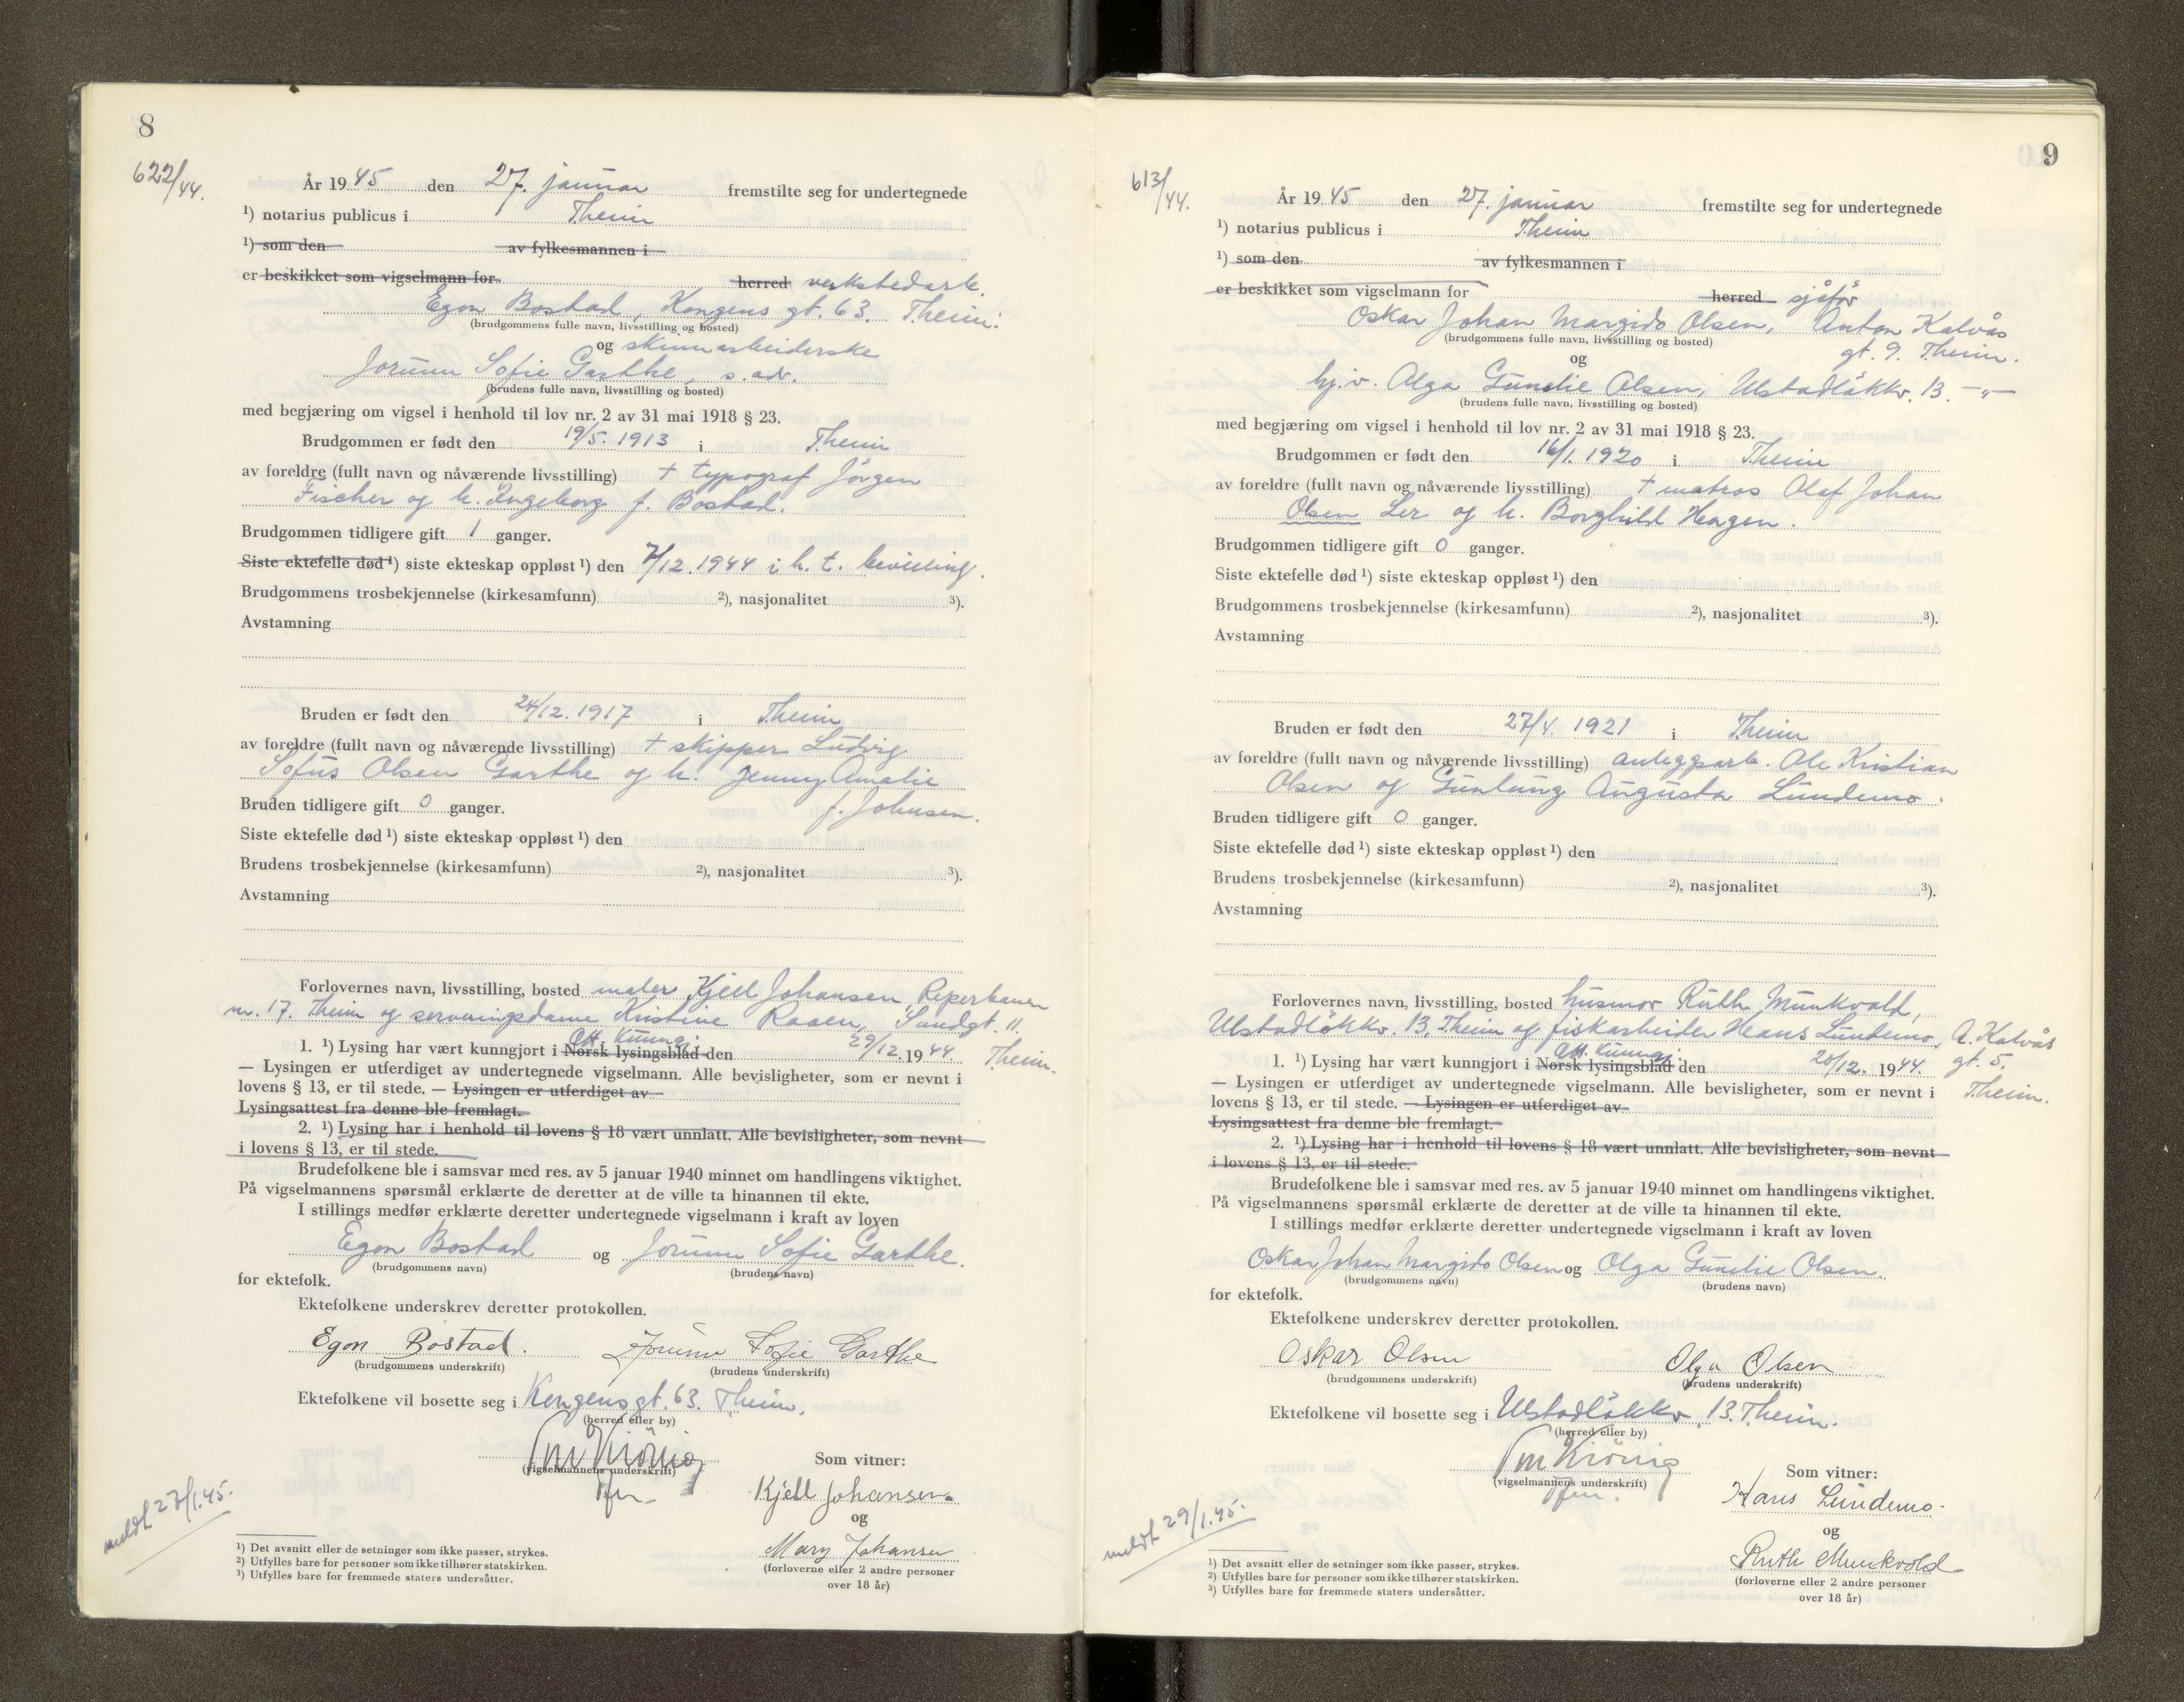 8
622/44.
År 1945 den 27. januar fremstilte seg for undertegnede
¹) notarius publicus i Theim
¹) som den av fylkesmannen i
er beskikket som vigselmann for herred verkstedarb.
Egon Bostad, Kongens gt. 63. Theim.
(brudgommens fulle navn, livsstilling og bosted)
og skinnarbeiderske
Jorunn Sofie Garthe, s. adr.
(brudens fulle navn, livsstilling og bosted)
med begjæring om vigsel i henhold til lov nr. 2 av 31 mai 1918 § 23.
Brudgommen er født den 19/5. 1913 i Theim
av foreldre (fullt navn og nåværende livsstilling) + typograf Jörgen
Fischer og h. Ingeborg f. Bostad.
Brudgommen tidligere gift 1 ganger.
Siste ektefelle død ¹) siste ekteskap oppløst ¹) den 7/12. 1944 i h. t. bevilling.
Brudgommens trosbekjennelse (kirkesamfunn) ²), nasjonalitet ³).
Avstamning
Bruden er født den 24/12. 1917 i Theim
av foreldre (fullt navn og nåværende livsstilling) + skipper Ludvig
Sofus Olsen Garthe og h. Jenny Amalie
f. Johnsen.
Bruden tidligere gift 0 ganger.
Siste ektefelle død ¹) siste ekteskap oppløst ¹) den
Brudens trosbekjennelse (kirkesamfunn) ²), nasjonalitet ³).
Avstamning
Forlovernes navn, livsstilling, bosted maler Kjell Johansen, Reperbanen
nr. 17. Theim og serveringsdame Kristine Raaen, Sandgt. 11.
Theim.
Off. kunngj.
1. ¹) Lysing har vært kunngjort i Norsk lysingsblad den 29/12. 1944.
— Lysingen er utferdiget av undertegnede vigselmann. Alle bevisligheter, som er nevnt i
lovens § 13, er til stede. — Lysingen er utferdiget av
Lysingsattest fra denne ble fremlagt.
2. ¹) Lysing har i henhold til lovens § 18 vært unnlatt. Alle bevisligheter, som nevnt
i lovens § 13, er til stede.
Brudefolkene ble i samsvar med res. av 5 januar 1940 minnet om handlingens viktighet.
På vigselmannens spørsmål erklærte de deretter at de ville ta hinannen til ekte.
I stillings medfør erklærte deretter undertegnede vigselmann i kraft av loven
Egon Bostad og Jorunn Sofie Garthe.
(brudgommens navn) (brudens navn)
for ektefolk.
Ektefolkene underskrev deretter protokollen.
Egon Bostad. Jorunn Sofie Garthe
(brudgommens underskrift) (brudens underskrift)
Ektefolkene vil bosette seg i Kongensgt. 63. Theim.
(herred eller by)
(vigselmannens underskrift)
Som vitner:
Kjell Johansen
og
Mary Johansen
(forloverne eller 2 andre personer
over 18 år)
meldt 27/1.45.
¹) Det avsnitt eller de setninger som ikke passer, strykes.
²) Utfylles bare for personer som ikke tilhører statskirken.
³) Utfylles bare for fremmede staters undersåtter.
9
613/44.
År 1945 den 27. januar fremstilte seg for undertegnede
¹) notarius publicus i Theim
¹) som den av fylkesmannen i
er beskikket som vigselmann for herred sjåför
Oskar Johan Margido Olsen, Anton Kalvås
gt. 9. Theim.
(brudgommens fulle navn, livsstilling og bosted)
og
hj.v. Olga Gunelie Olsen, Ulstadlökkv. 13. —"—
(brudens fulle navn, livsstilling og bosted)
med begjæring om vigsel i henhold til lov nr. 2 av 31 mai 1918 § 23.
Brudgommen er født den 16/1. 1920 i Theim
av foreldre (fullt navn og nåværende livsstilling) + matros Olaf Johan
Olsen Ler og h. Borghild Hagen.
Brudgommen tidligere gift 0 ganger.
Siste ektefelle død ¹) siste ekteskap oppløst ¹) den
Brudgommens trosbekjennelse (kirkesamfunn) ²), nasjonalitet ³).
Avstamning
Bruden er født den 27/4. 1921 i Theim
av foreldre (fullt navn og nåværende livsstilling) anleggsarb. Ole Kristian
Olsen og Gunlaug Augusta Lundemo.
Bruden tidligere gift 0 ganger.
Siste ektefelle død ¹) siste ekteskap oppløst ¹) den
Brudens trosbekjennelse (kirkesamfunn) ²), nasjonalitet ³).
Avstamning
Forlovernes navn, livsstilling, bosted husmor Ruth Munkvold,
Ulstadlökkv. 13, Theim og fiskarbeider Hans Lundemo, A. Kalvås
gt. 5.
Theim.
Off. kunngj.
1. ¹) Lysing har vært kunngjort i Norsk lysingsblad den 20/12. 1944.
— Lysingen er utferdiget av undertegnede vigselmann. Alle bevisligheter, som er nevnt i
lovens § 13, er til stede. — Lysingen er utferdiget av
Lysingsattest fra denne ble fremlagt.
2. ¹) Lysing har i henhold til lovens § 18 vært unnlatt. Alle bevisligheter, som nevnt
i lovens § 13, er til stede.
Brudefolkene ble i samsvar med res. av 5 januar 1940 minnet om handlingens viktighet.
På vigselmannens spørsmål erklærte de deretter at de ville ta hinannen til ekte.
I stillings medfør erklærte deretter undertegnede vigselmann i kraft av loven
Oskar Johan Margido Olsen og Olga Gunelie Olsen.
(brudgommens navn) (brudens navn)
for ektefolk.
Ektefolkene underskrev deretter protokollen.
Oskar Olsen Olga Olsen
(brudgommens underskrift) (brudens underskrift)
Ektefolkene vil bosette seg i Ulstadlökkv. 13. Theim.
(herred eller by)
(vigselmannens underskrift)
Som vitner:
Hans Lundemo
og
Ruth Munkvold
(forloverne eller 2 andre personer
over 18 år)
meldt 29/1.45.
¹) Det avsnitt eller de setninger som ikke passer, strykes.
²) Utfylles bare for personer som ikke tilhører statskirken.
³) Utfylles bare for fremmede staters undersåtter.